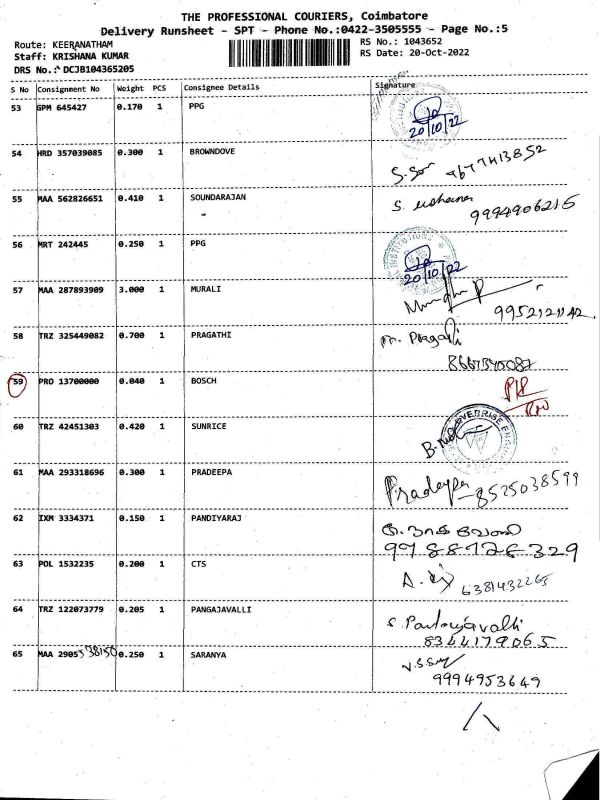 THE PROFESSIONAL COURIERS, Coimbatore
Delivery Runsheet - SPT - Phone No.:0422-3505555 - Page No.:5
Route: KEERANATHAM
RS No.: 1043652
Staff: KRISHANA KUMAR
RS Date: 20-Oct-2022
DRS No.: DCJB104365205
S No Consignment No Weight PCS Consignee Details Signature
53 GPM 645427 0.170 1 PPG
20/10/22
54 HRD 357039085 0.300 1 BROWNDOVE
55 MAA 562826651 0.410 1 SOUNDARAJAN
9994906216
56 MRT 242445 0.250 1 PPG
20/10/22
57 MAA 287893909 3.000 1 MURALI
58 TRZ 325449082 0.700 1 PRAGATHI
59 PRO 13700000 0.040 1 BOSCH
60 TRZ 42451303 0.420 1 SUNRICE
61 MAA 293318696 0.300 1 PRADEEPA
Pradeepa 8525038599
62 IXM 3334371 0.150 1 PANDIYARAJ
63 POL 1532235 0.200 1 CTS
6381432265
64 TRZ 122073779 0.205 1 PANGAJAVALLI
8344179065
65 MAA 2905538150 0.250 1 SARANYA
9994953649